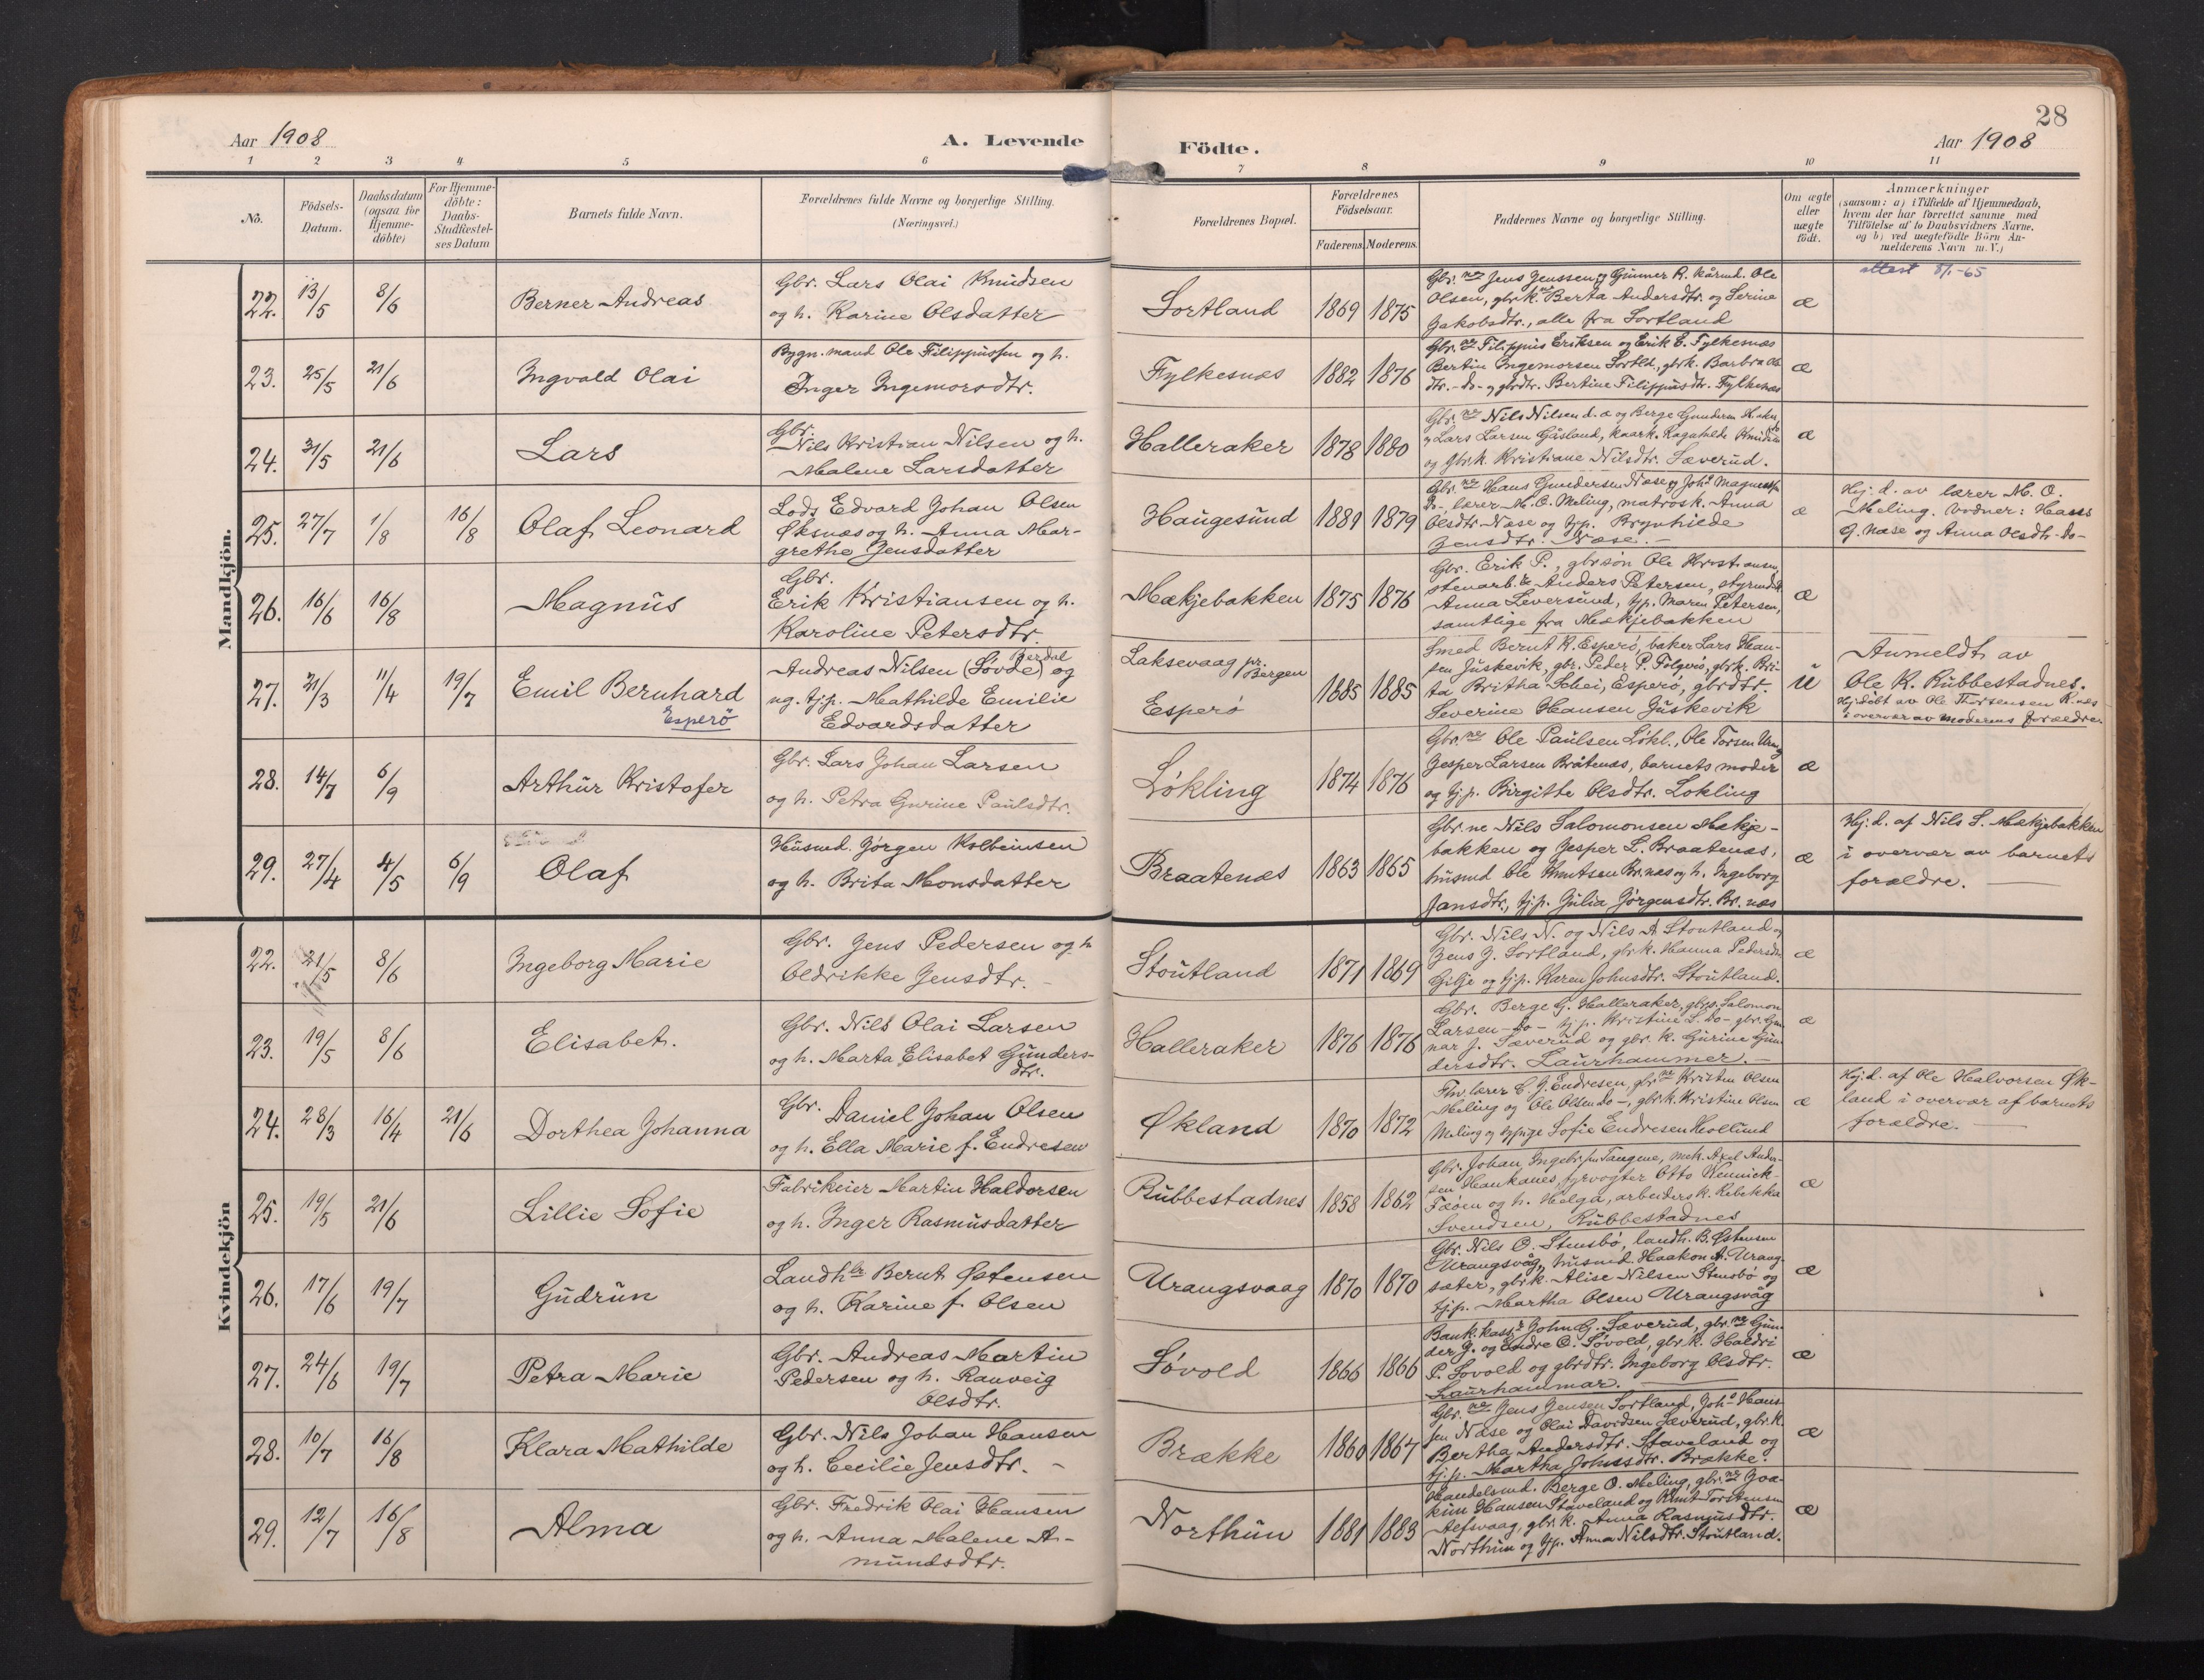 28
Aar 1908
A. Levende
Födte.
Aar 1908
1 2 3 4 5 6 7 8 9 10 11
No.
Födsels-
Datum.
Daabsdatum
(ogsaa for
Hjemme-
döbte)
For Hjemme-
döbte:
Daabs-
Stadfæstel-
ses Datum
Barnets fulde Navn.
Forældrenes fulde Navne og borgerlige Stilling.
(Næringsvei.)
Forældrenes Bopæl.
Forældrenes
Födselsaar.
Faderens. Moderens.
Faddernes Navne og borgerlige Stilling.
Om ægte
eller
uægte
födt.
Anmærkninger
(saasom: a) i Tilfælde af Hjemmedaab,
hvem der har forrettet samme med
Tilföielse af to Daabsvidners Navne,
og b) ved uægtefödte Börn An-
melderens Navn m. V.)
Mandkjön.
22. 13/5 8/6 Berner Andreas
Gbr. Lars Olai Knudsen
og h. Karine Olsdatter
Sortland 1869 1875
Gbr.ne Jens Jenssen og Gunner R. kårmd. Ole
Olsen, gbrk.ne Berta Andersdtr. og Serine
Jakobsdtr., alle fra Sortland
æ
attest 8/1-65
23. 25/5 21/6 Ingvald Olai
Bygn.mand Ole Filippussen og h.
Inger Ingemorsdtr.
Fylkesnæs 1882 1876
Gbr.ne Filippus Eriksen og Erik E. Fylkesnæs
Bertin Ingemorsen Sortld., gbrk. Barbra Ols
dtr. -do- og gbrdtr. Bertine Filippusdtr. Fylkesnæs
æ
24. 31/5 21/6 Lars
Gbr.
Nils Kristian Nilsen og h.
Malene Larsdatter
Halleraker 1878 1880
Gbr.ne Nils Nilsen d.æ og Berge Gundersn H.aker
og Lars Larsen Gåsland, kaark. Ragnhilde
og Gbrk. Kristiane Nilsdtr. Sæverud.
æ
25. 27/7 1/8 16/8 Olaf Leonard
Lods Edvard Johan Olsen
Øksnæs og h. Anna Mar-
grethe Jensdatter
Haugesund 1881 1879
Gbr.ne Hans Gundersen Næse og Joh.s Magnussen
do-, lærer M. O. Meling, matrosk. Anna
Olsdtr. Næse og tjp. Brynhilde
Jensdtr. Næse. -
æ
Hj. d. av lærer M. O.
Meling. Vidner: Hans
G. Næse og Anna Olsdtr -do-
26. 16/6 16/8 Magnus
Gbr.
Erik Kristiansen og h.
Karoline Petersdtr.
Mækjebakken 1875 1876
Gbr. Erik P., gbrsøn Ole Kristiansen,
stenarb. Anders Petersen, styrmdk.
Anna Leversund, tjp. Maren Petersen,
samtlige fra Mækjebakken
æ
27. 31/3 11/4 19/7 Emil Bernhard
Esperö
Berdal
Andreas Nilsen (Søvde) og
ug. tj.p. Mathilde Emilie
Edvardsdatter
Laksevaag pr.
Bergen
Esperø
1885 1885
Smed Bernt K. Esperø, baker Lars Han-
sen Juskevik, gbr. Peder P. Fólgerö, gbrk. Bri-
ta Britha Schei, Esperø, gbrdtr.
Severine Hansen Juskevik
u
Anmeldt av
Ole K. Rubbestadnes.
Hj.døbt av Ole Thorsensen R.nes
i overvær av moderens forældre.
28. 14/7 6/9 Arthur Kristofer
Gbr. Lars Johan Larsen
og h. Petra Gurine Paulsdtr.
Løkling 1874 1876
Gbr.ne Ole Paulsen Løkl., Ole Torsen
Jesper Larsen Bråtenæs, barnets moder
og tj.p. Birgitte Olsdtr. Løkling
æ
29. 27/4 4/5 6/9 Olaf
Husmd. Jørgen Kolbeinsen
og h. Brita Monsdatter
Braatenæs 1863 1865
Gbr.ne Nils Salomonsen Mækje-
bakken og Jesper L. Braatenæs,
husmd Ole Knutsen Br.næs og h. Ingeborg
Jansdtr., tj.p. Julia Jørgensdtr. Br. næs
æ
Hj. d. af Nils S. Mækjebakken
i overvær av barnets
forældre. —
Kvindekjön
22. 21/5 8/6 Ingeborg Marie
Gbr. Jens Pedersen og h
Oldrikke Jensdtr. -
Stoutland 1871 1869
Gbr. Nils N. og Nils A Stoutland og
Jens J. Sortland, gbrk. Hanna Pedersdtr
Gilje og tj.p. Karen Johnsdtr. Stoutland.
æ
23. 19/5 8/6 Elisabet.
Gbr. Nils Olai Larsen
og h. Marta Elisabet Gunders-
dtr.
Halleraker 1876 1876
Gbr. Berge G. Halleraker, gbrs. Salomon
Larsen -do- tj.p. Kristine L. do- gbr. Gun
nar J. Sæverud og gbr. k. Gurine Gun
dersdtr. Laurhammer. —
æ
24. 28/3 16/4 21/6 Dorthea Johanna
Gbr. Daniel Johan Olsen
og h. Ella Marie f. Endresen
Økland 1870 1872
Fhv. lærer C. J. Endresen, gbr.ne Kristen Olsen
Meling og Ole Olsen do-, gbrk. Kristine Olsen
Meling og Sofie Endresen Hollund
æ
Hj. d. af Ole Halvorsen Øk-
land i overvær af barnets
forældre. —
25. 19/5 21/6 Lillie Sofie
Fabrikeier Martin Haldorsen
og h. Inger Rasmusdatter
Rubbestadnes 1858 1862
Gbr. Johan Ingebr.sen Tangene, mek. Axel Ander-
sen Haukanes, fyrvogter Otto Wennick-
Fæöen og h. Helga, arbeidersk. Rebekka
Svendsen, Rubbestadnes
æ
26. 17/6 19/7 Gudrun
Landhlr Bernt Østensen
og h. Karine f. Olsen
Urangsvaag 1870 1870
Gbr. Nils O. Stensbø, landh. B. Østensen
Urangsvåg, husmd. Haakon A. Urang-
sæter, gbrk. Alise Nilsen Stensbø og
tjp. Martha Olsen Urangsvåg
æ
27. 24/6 19/7 Petra Marie
Gbr. Andreas Martin
Pedersen og h. Ranveig
Olsdtr.
Søvold 1866 1866
Bank.kass.r John G. Sæverud, gbr.ne Gun-
der J. og Endre O. Søvold, gbr. k. Haldri
P. Sovold og gbrdtr. Ingeborg Olsdtr.
Laurhammar. —
æ
28. 10/7 16/8 Klara Mathilde
Gbr. Nils Johan Hansen
og h. Cecilie Jensdtr. -
Brække 1860 1867
Gbr.ne Jens Jensen Sortland, Joh.s Hans
sen Næse og Olai Davidsen Sæverud, gbr. k.
Bertha Andersdtr. Staveland og
tj.p. Martha Johnsdtr. Brække.
æ
29. 12/7 16/8 Alma
Gbr. Fredrik Olai Hansen
og h. Anna Malene A-
mundsdtr.
Northun 1881 1883
Handelsmd. Berge O. Meling, gbr.ne Joa-
kim Hansen Staveland og Knut Torstensen
Aefsvaag, gbr. k. Anna Rasmusdtr.
Northun og tjp. Anna Nilsdtr. Stoutland.
æ